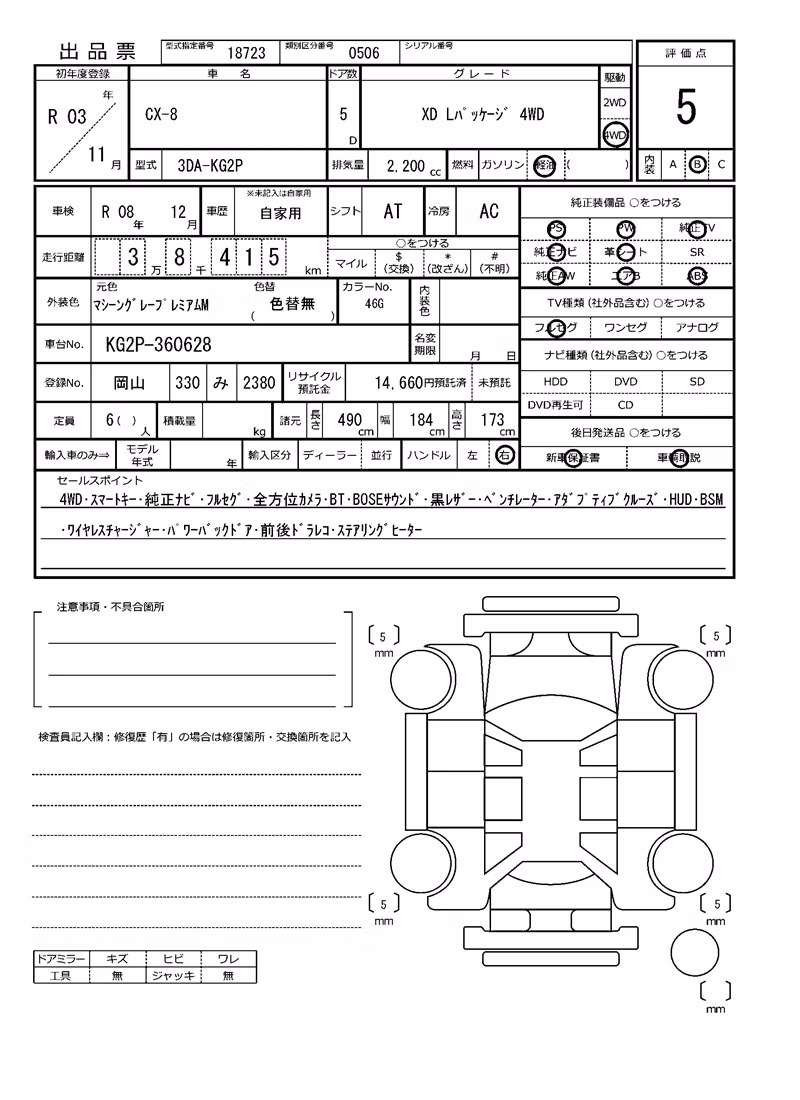 出品票 型式指定番号 18723 類別区分番号 0506 シリアル番号
評価点
5
内装 A B C
初年度登録 車名 ドア数 グレード 駆動
R 03 年 11 月 CX-8 5 D XD Lパッケージ 4WD 2WD 4WD
型式 3DA-KG2P 排気量 2,200 cc 燃料 ガソリン 軽油 ( )
車検 R 08 年 12 月 車歴 ※未記入は自家用 自家用 シフト AT 冷房 AC
走行距離 3 万 8 千 4 1 5 km ○をつける
マイル $(交換) *(改ざん) #(不明)
外装色 元色 マシーングレープレミアムM 色替 ( 色替無 ) カラーNo. 46G 内装色
車台No. KG2P-360628 名変期限 月 日
登録No. 岡山 330 み 2380 リサイクル預託金 14,660円預託済 未預託
定員 6( ) 人 積載量 kg 諸元 長さ 490 cm 幅 184 cm 高さ 173 cm
輸入車のみ⇒ モデル年式 年 輸入区分 ディーラー 並行 ハンドル 左 右
純正装備品 ○をつける
PS PW 純正TV
純正ナビ 革シート SR
純正AW エアB ABS
TV種類(社外品含む)○をつける
フルセグ ワンセグ アナログ
ナビ種類(社外品含む)○をつける
HDD DVD SD
DVD再生可 CD
後日発送品 ○をつける
新車保証書 車輌取説
セールスポイント
4WD・スマートキー・純正ナビ・フルセグ・全方位カメラ・BT・BOSEサウンド・黒レザー・ベンチレーター・アダプティブクルーズ・HUD・BSM
・ワイヤレスチャージャー・パワーバックドア・前後ドラレコ・ステアリングヒーター
注意事項・不具合箇所
検査員記入欄:修復歴「有」の場合は修復箇所・交換箇所を記入
ドアミラー キズ ヒビ ワレ
工具 無 ジャッキ 無
5 mm
5 mm
5 mm
5 mm
mm